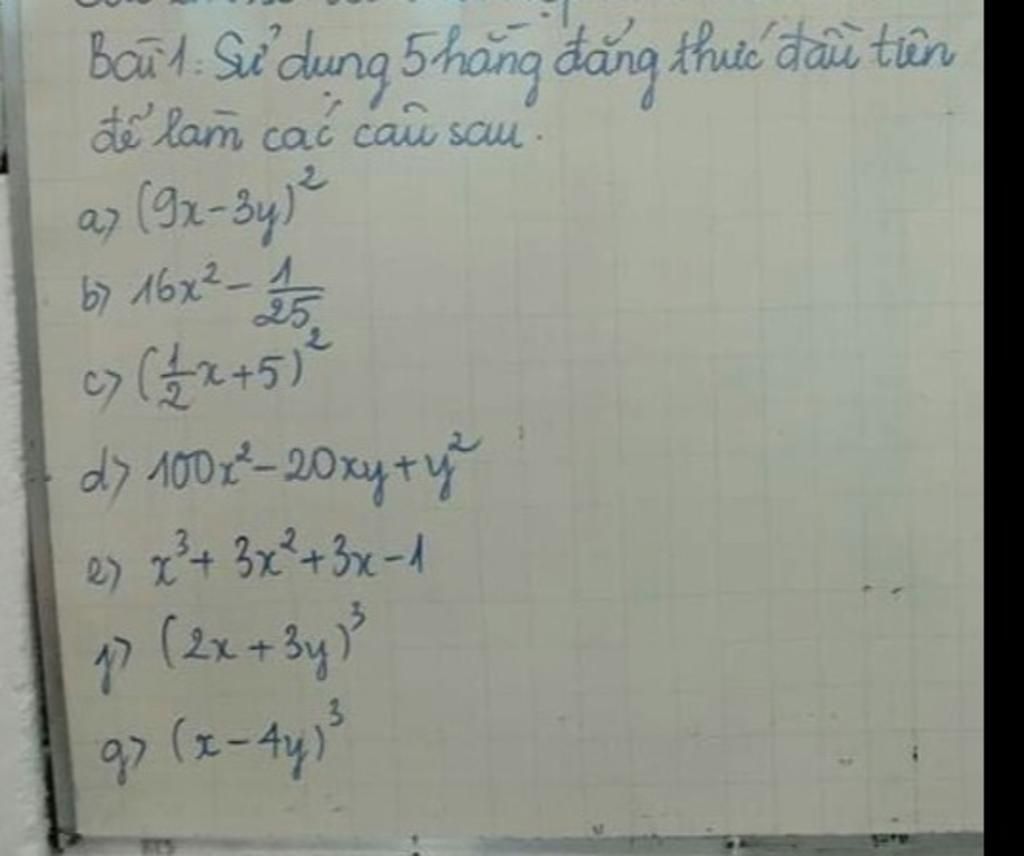 Bài 1: Sử dụng 5 hằng đẳng thức đầu tiên
để làm các câu sau.
a) (9x-3y)²
b) 16x² - 1/25
c) (1/2x+5)²
d) 100x² - 20xy + y²
e) x³ + 3x² + 3x - 1
f) (2x + 3y)³
g) (x - 4y)³